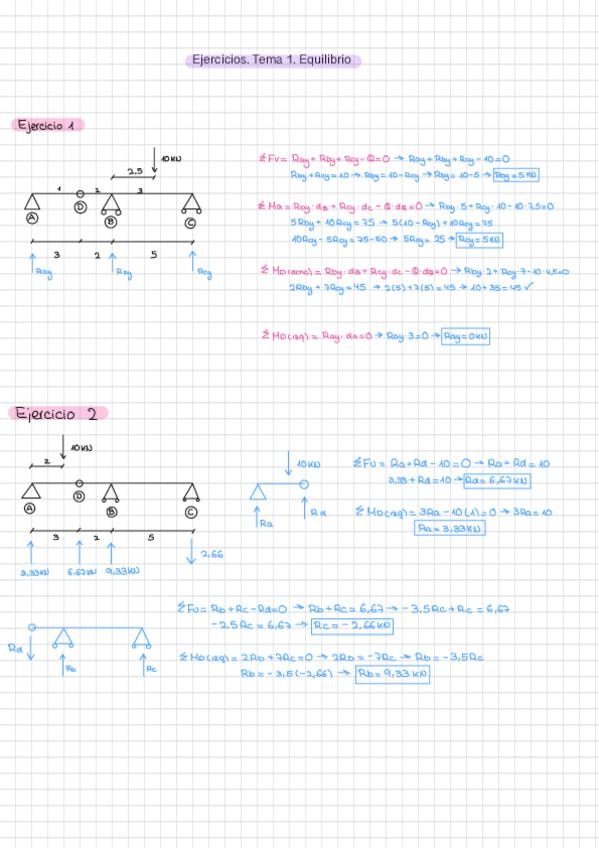 Ejercicios. Tema 1. Equilibrio
Ejercicio 1
10KN
2,5
1 2 3
A D B C
3 2 5
Ray Rby Rcy
ΣFv= Ray+ Rby+ Rcy- Q=0 → Ray+Rby+ Rcy -10=0
Rby+Rcy=10 → Rby= 10-Rcy → Rby= 10-5 → Rby=5KN
ΣMa= Rby·dB+ Rcy·dc - Q·dQ=0 → Rby·5+ Rcy·10-10·7,5=0
5Rby+ 10Rcy= 75 → 5(10-Rcy)+10Rcy=75
10Rcy- 5Rcy= 75-50 → 5Rcy= 25 → Rcy= 5KN
2Rby+ 7Rcy=45 → 2(5)+7(5)= 45 → 10+35=45 ✓
ΣMD(izq)= Ray·dA=0 → Ray·3=0 → Ray=0KN
Ejercicio 2
10KN
2
A D B C
3 2 5
3,33KN 6,67KN 9,33KN 2,66
10KN
Ra Rd
ΣFv= Ra+Rd-10=0 → Ra+Rd=10
3,33+Rd=10 → Rd= 6,67KN
ΣMD(izq)= 3Ra-10(1)=0 → 3Ra=10
Ra= 3,33KN
Rd Rb Rc
ΣFv= Rb+Rc-Rd=0 → Rb+Rc= 6,67 → -3,5Rc+Rc= 6,67
-2,5Rc= 6,67 → Rc= -2,66KN
2Rb+7Rc=0 → 2Rb= -7Rc → Rb= -3,5Rc
Rb= -3,5(-2,66) → Rb= 9,33 KN